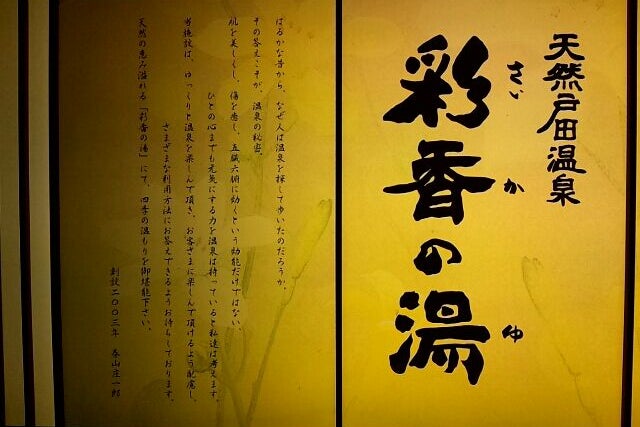 天然戸田温泉
彩香の湯
さいかゆ
はるかな昔から、なぜ人は温泉を探して歩いたのだろうか。
その答えこそが、温泉の秘密。
肌を美しくし、傷を癒し、五臓六腑に効くという効能だけではない。
ひとの心までも元気にする力を温泉は持っていると私達は考えます。
当施設は、ゆっくりと温泉を楽しんで頂き、お客さまに楽しんで頂けるよう配慮し、
さまざまな利用方法にお答えできるようお待ちしております。
天然の恵み溢れる「彩香の湯」にて、四季の温もりを御堪能下さい。
創設二〇〇三年 泰山庄一郎